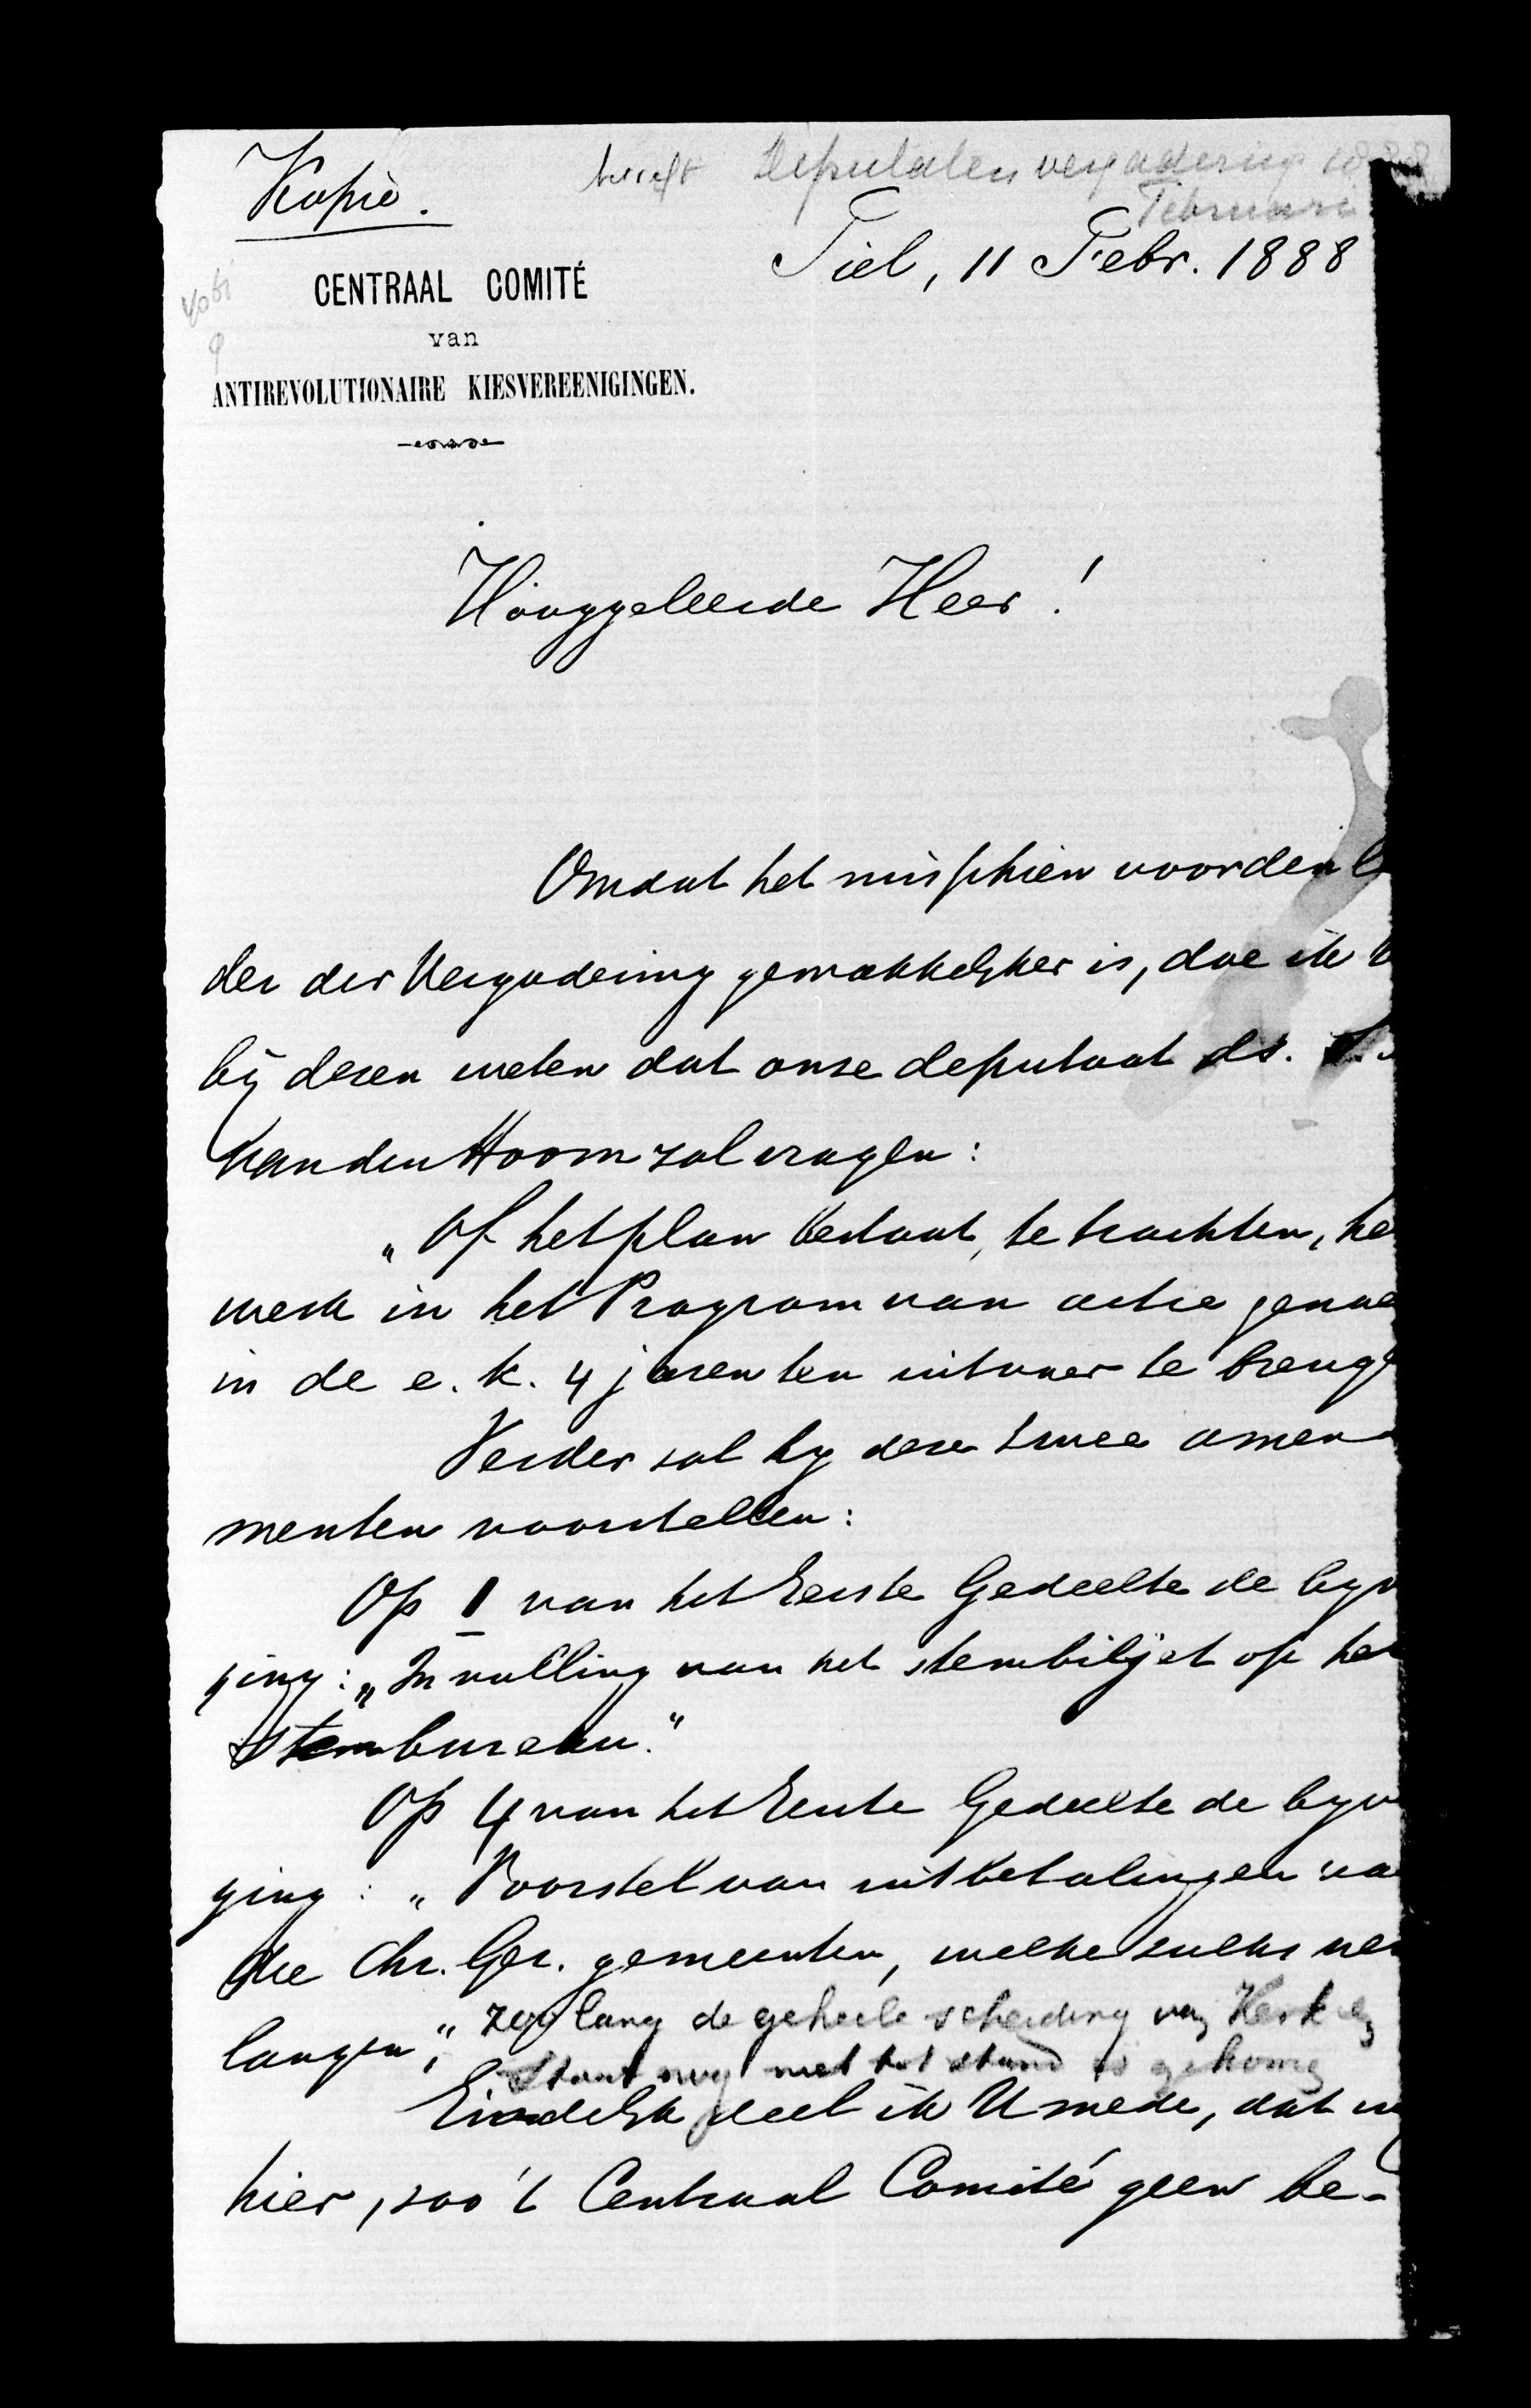 Kopie.
betreft Deputaten vergadering 1888
Februari
Tiel, 11 Febr. 1888
CENTRAAL COMITÉ
van
ANTIREVOLUTIONAIRE KIESVEREENIGINGEN.
Hooggeleerde Heer!
Omdat het misschien voor den
der der Vergadering gemakkelijker is, doe ik
bij dezen weten dat onze deputaat ds.
van den Hoorn zal vragen:
"Of het plan bestaat, te trachten, he
werk in het Program van actie genoe
in de e. k. 4 jaren ten uitvoer te breng
Verder zal hy deze twee amen
menten voorstellen:
Op 1 van het Eerste Gedeelte de byv
ging: "Invulling van het stembiljet op het
stembureau."
Op 4 van het Eerste Gedeelte de byv
ging: "Voorstel van uitbetalingen va
die Chr. Ger. gemeenten, welke zulks ver
langen," zoolang de geheele scheiding van Kerk en
Staat nog niet tot stand is gekomen
Eindelijk deel ik U mede, dat we
hier, zoo 't Centraal Comité geen be-